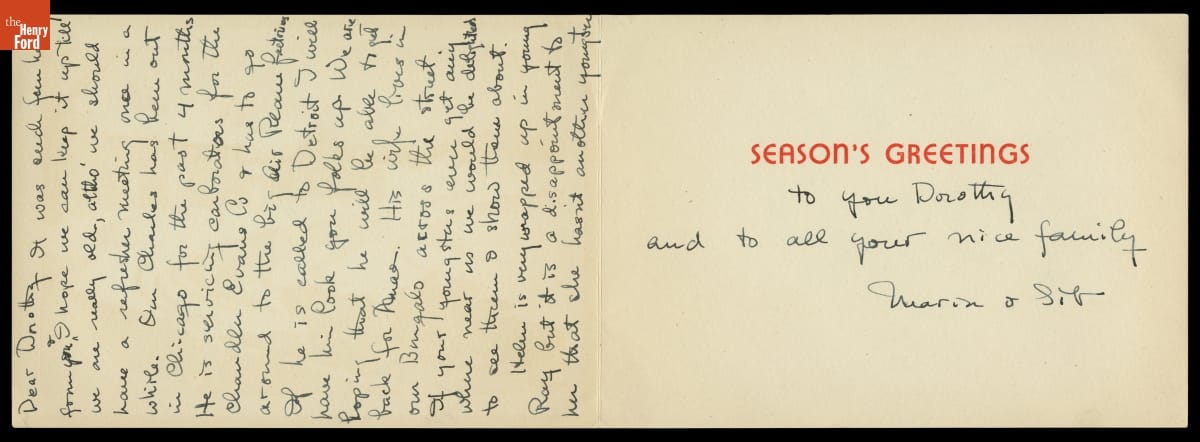 the
Henry
Ford
Dear Dorothy It was such fun
from you, & hope we can keep it up till
we are really old, altho' we should
have a refresher meeting once in a
while. Our Charles has been out
in Chicago for the past 4 months
He is servicing carborators for the
Chandler Evans Co & has to go
around to the big Air Plane factories
If he is called to Detroit I will
have him look you folks up. We are
hoping that he will be able to get
back for Xmas. His wife lives in
our Bungalo across the street
If your youngsters ever get any
where near us we would be delighted
to see them & show them about.
Helen is very wrapped up in young
Ray but it is a disappointment to
her that she hasn't another youngster
SEASON'S GREETINGS
to you Dorothy
and to all your nice family
Marion & Sib